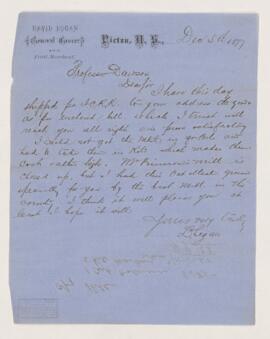 DAVID LOGAN
General Grocer
AND
Fruit Merchant.
Pictou, N. S., Dec 5th 1877
Professor Dawson
Dear Sir
I have this day
shipped for I.C.R.R. to your address the goods
as per enclosed bill, which I trust will
reach you all right and prove satisfactory
I could not get the in and
had to take them in Kits which makes them
cost rather high. Mr Mill is
closed up, but I had this Oatmeal ground
specially for you by the best mill in the
County, I think it will please you at
least I hope it will
Yours very truly
D Logan